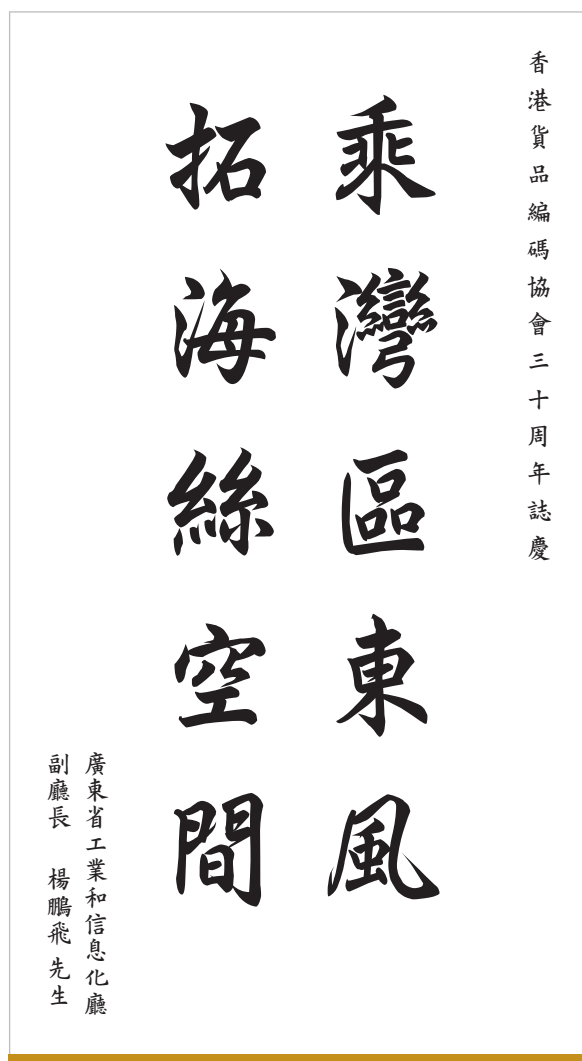 香港貨品編碼協會三十周年誌慶
乘灣區東風
拓海絲空間
廣東省工業和信息化廳
副廳長　楊鵬飛先生